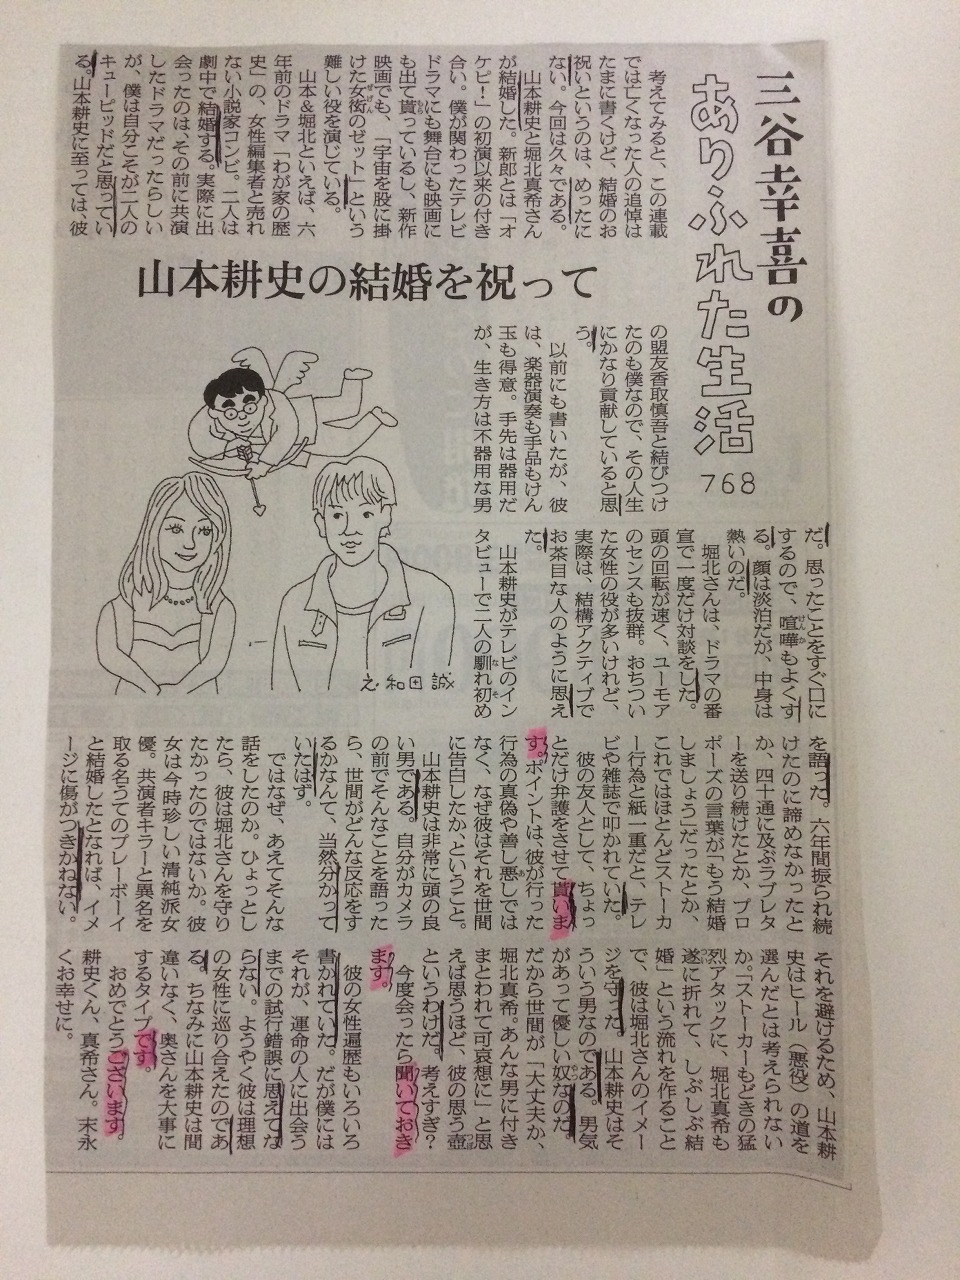 三谷幸喜の
ありふれた生活
768
山本耕史の結婚を祝って
考えてみると、この連載
では亡くなった人の追悼は
たまに書くけど、結婚のお
祝いというのは、めったに
ない。今回は久々である。
山本耕史と堀北真希さん
が結婚した。新郎とは「オ
ケピ！」の初演以来の付き
合い。僕が関わったテレビ
ドラマにも舞台にも映画に
も出て貰っているし、新作
映画でも、「宇宙を股に掛
けた女衒のゼット」という
難しい役を演じている。
山本＆堀北といえば、六
年前のドラマ「わが家の歴
史」の、女性編集者と売れ
ない小説家コンビ。二人は
劇中で結婚する。実際に出
会ったのは、その前に共演
したドラマだったらしい
が、僕は自分こそが二人の
キューピッドだと思ってい
る。山本耕史に至っては、彼
の盟友香取慎吾と結びつけ
たのも僕なので、その人生
にかなり貢献していると思
う。
以前にも書いたが、彼
は、楽器演奏も手品もけん
玉も得意。手先は器用だ
が、生き方は不器用な男
だ。思ったことをすぐ口に
するので、喧嘩もよくす
る。顔は淡泊だが、中身は
熱いのだ。
堀北さんは、ドラマの番
宣で一度だけ対談をした。
頭の回転が速く、ユーモア
のセンスも抜群。おちつい
た女性の役が多いけれど、
実際は、結構アクティブで
お茶目な人のように思え
た。
山本耕史がテレビのイン
タビューで二人の馴れ初め
を語った。六年間振られ続
けたのに諦めなかったと
か、四十通に及ぶラブレタ
ーを送り続けたとか、プロ
ポーズの言葉が「もう結婚
しましょう」だったとか、
これではほとんどストーカ
ー行為と紙一重だと、テレ
ビや雑誌で叩かれていた。
彼の友人として、ちょっ
とだけ弁護をさせて貰いま
す。ポイントは、彼が行った
行為の真偽や善し悪しでは
なく、なぜ彼はそれを世間
に告白したか、ということ。
山本耕史は非常に頭の良
い男である。自分がカメラ
の前でそんなことを語った
ら、世間がどんな反応をす
るかなんて、当然分かって
いたはず。
ではなぜ、あえてそんな
話をしたのか。ひょっとし
たら、彼は堀北さんを守り
たかったのではないか。彼
女は今時珍しい清純派女
優。共演者キラーと異名を
取る名うてのプレーボーイ
と結婚したとなれば、イメ
ージに傷がつきかねない。
それを避けるため、山本耕
史はヒール（悪役）の道を
選んだとは考えられない
か。「ストーカーもどきの猛
烈アタックに、堀北真希も
遂に折れて、しぶしぶ結
婚」という流れを作ること
で、彼は堀北さんのイメー
ジを守った。山本耕史はそ
ういう男なのである。男気
があって優しい奴なのだ。
だから世間が「大丈夫か、
堀北真希。あんな男に付き
まとわれて可哀想に」と思
えば思うほど、彼の思う壺
というわけだ。考えすぎ？
今度会ったら聞いておき
ます。
彼の女性遍歴もいろいろ
書かれていた。だが僕には
それが、運命の人に出会う
までの試行錯誤に思えてな
らない。ようやく彼は理想
の女性に巡り合えたのであ
る。ちなみに山本耕史は間
違いなく、奥さんを大事に
するタイプです。
おめでとうございます。
耕史くん、真希さん。末永
くお幸せに。
え・和田誠